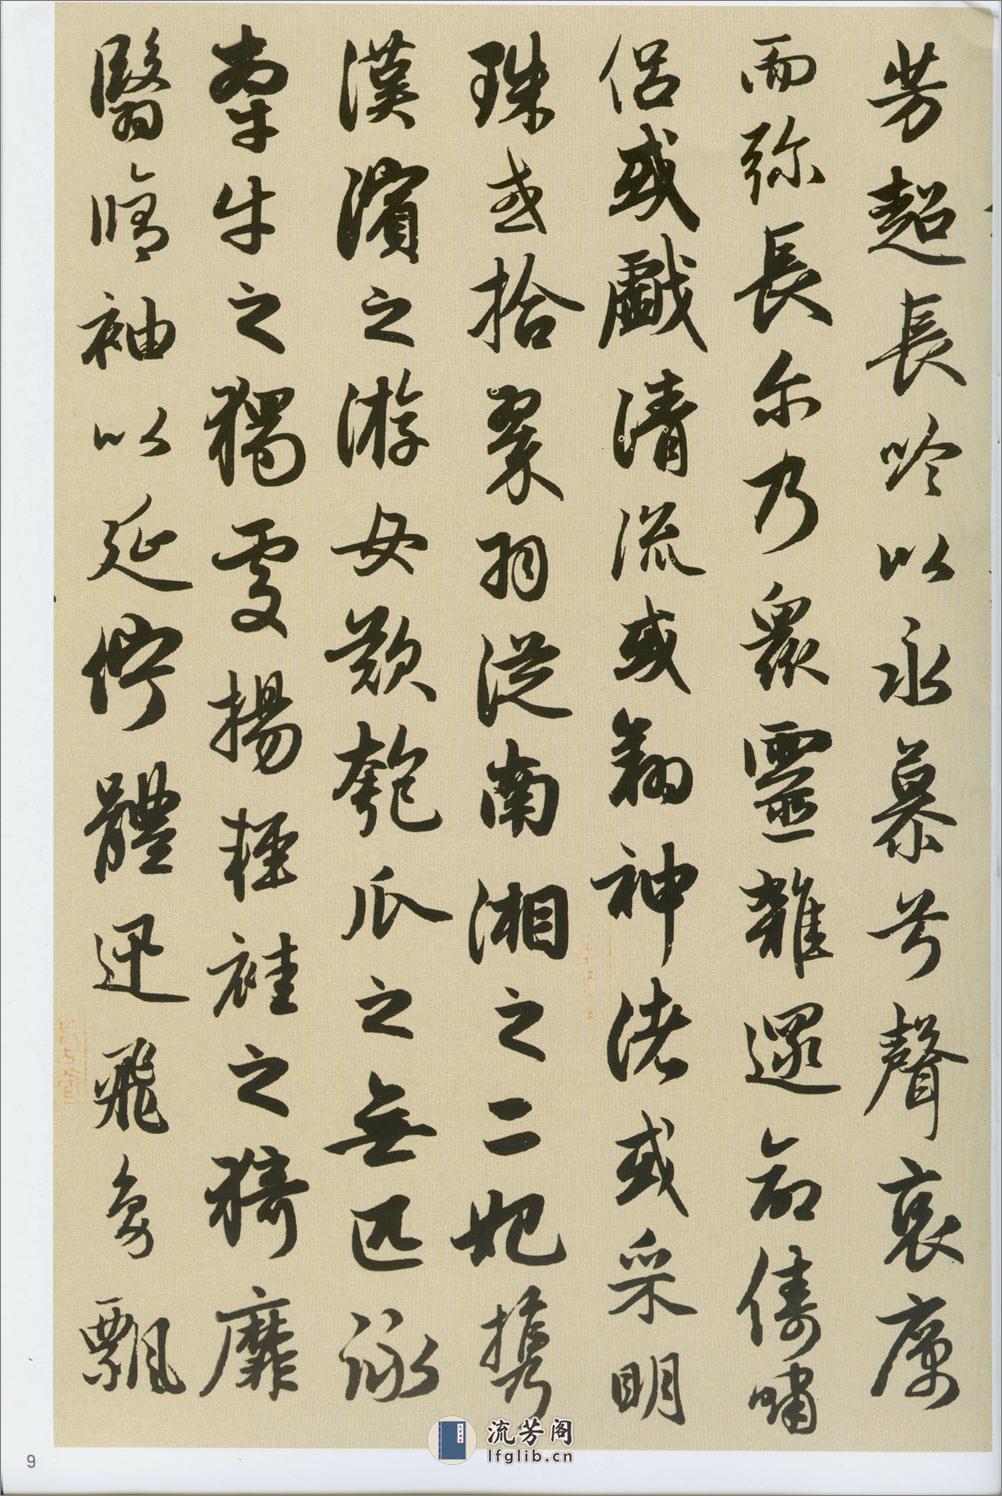 芳超長吟以永慕兮聲哀厲
而弥長尔乃衆靈雜遝命儔嘯
侣或戲清流或翔神渚或采明
珠或拾翠羽從南湘之二妃携
漢濱之游女歎匏瓜之無匹詠
牽牛之獨處揚輕袿之猗靡
翳脩袖以延佇體迅飛鳧飄
流芳阁
lfglib.cn
9